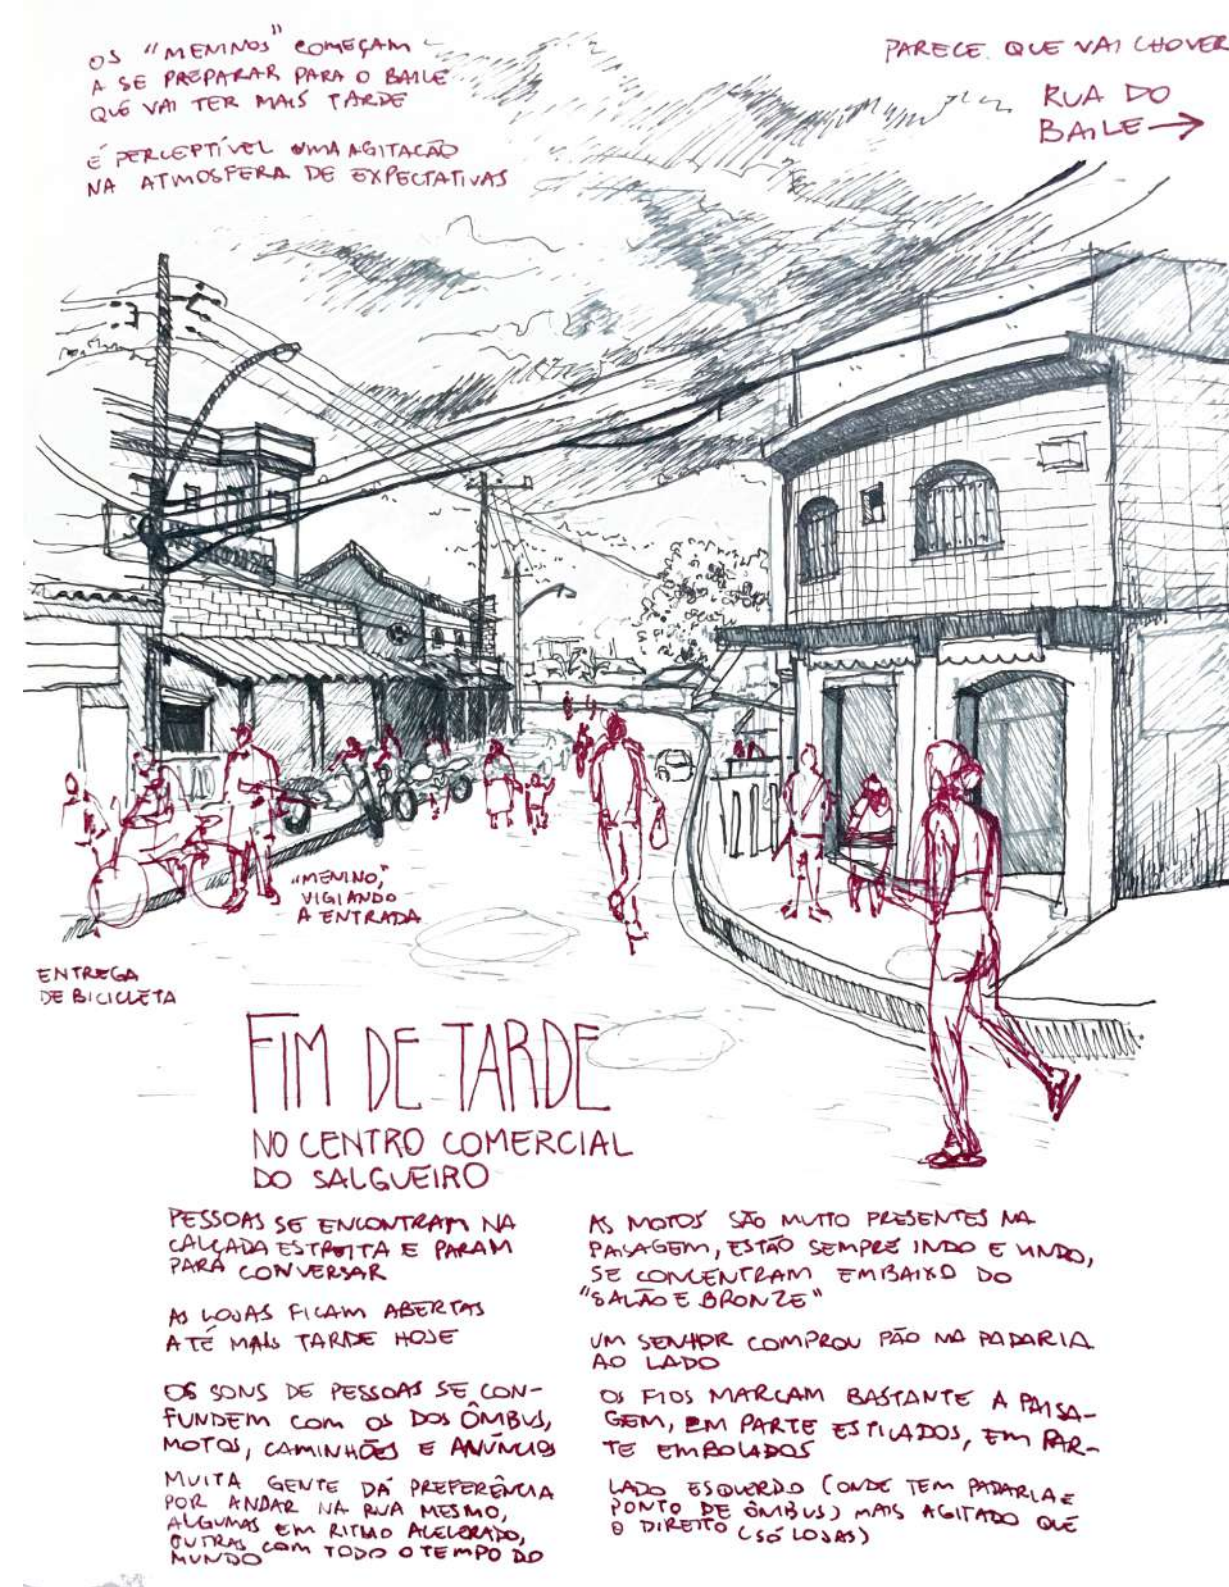 OS "MENINOS" COMEÇAM
A SE PREPARAR PARA O BAILE
QUE VAI TER MAIS TARDE
É PERCEPTÍVEL UMA AGITACÃO
NA ATMOSFERA DE EXPECTATIVAS
PARECE QUE VAI CHOVER
RUA DO
BAILE →
"MENINO"
VIGIANDO
A ENTRADA
ENTREGA
DE BICICLETA
FIM DE TARDE
NO CENTRO COMERCIAL
DO SALGUEIRO
PESSOAS SE ENCONTRAM NA
CALÇADA ESTREITA E PARAM
PARA CONVERSAR
AS LOJAS FICAM ABERTAS
ATÉ MAIS TARDE HOJE
OS SONS DE PESSOAS SE CON-
FUNDEM COM OS DOS ÔMBUS,
MOTOS, CAMINHÕES E ANÚNCIOS
MUITA GENTE DÁ PREFERÊNCIA
POR ANDAR NA RUA MESMO,
ALGUMAS EM RITMO ACELERADO,
OUTRAS COM TODO O TEMPO DO
MUNDO
AS MOTOS SÃO MUITO PRESENTES NA
PAISAGEM, ESTÃO SEMPRE INDO E VINDO,
SE CONCENTRAM EMBAIXO DO
"SALÃO E BRONZE"
UM SENHOR COMPROU PÃO NA PADARIA
AO LADO
OS FIOS MARCAM BASTANTE A PAISA-
GEM, EM PARTE ESTICADOS, EM PAR-
TE EMBOLADOS
LADO ESQUERDO (ONDE TEM PADARIA E
PONTO DE ÔMBUS) MAIS AGITADO QUE
O DIREITO (SÓ LOJAS)